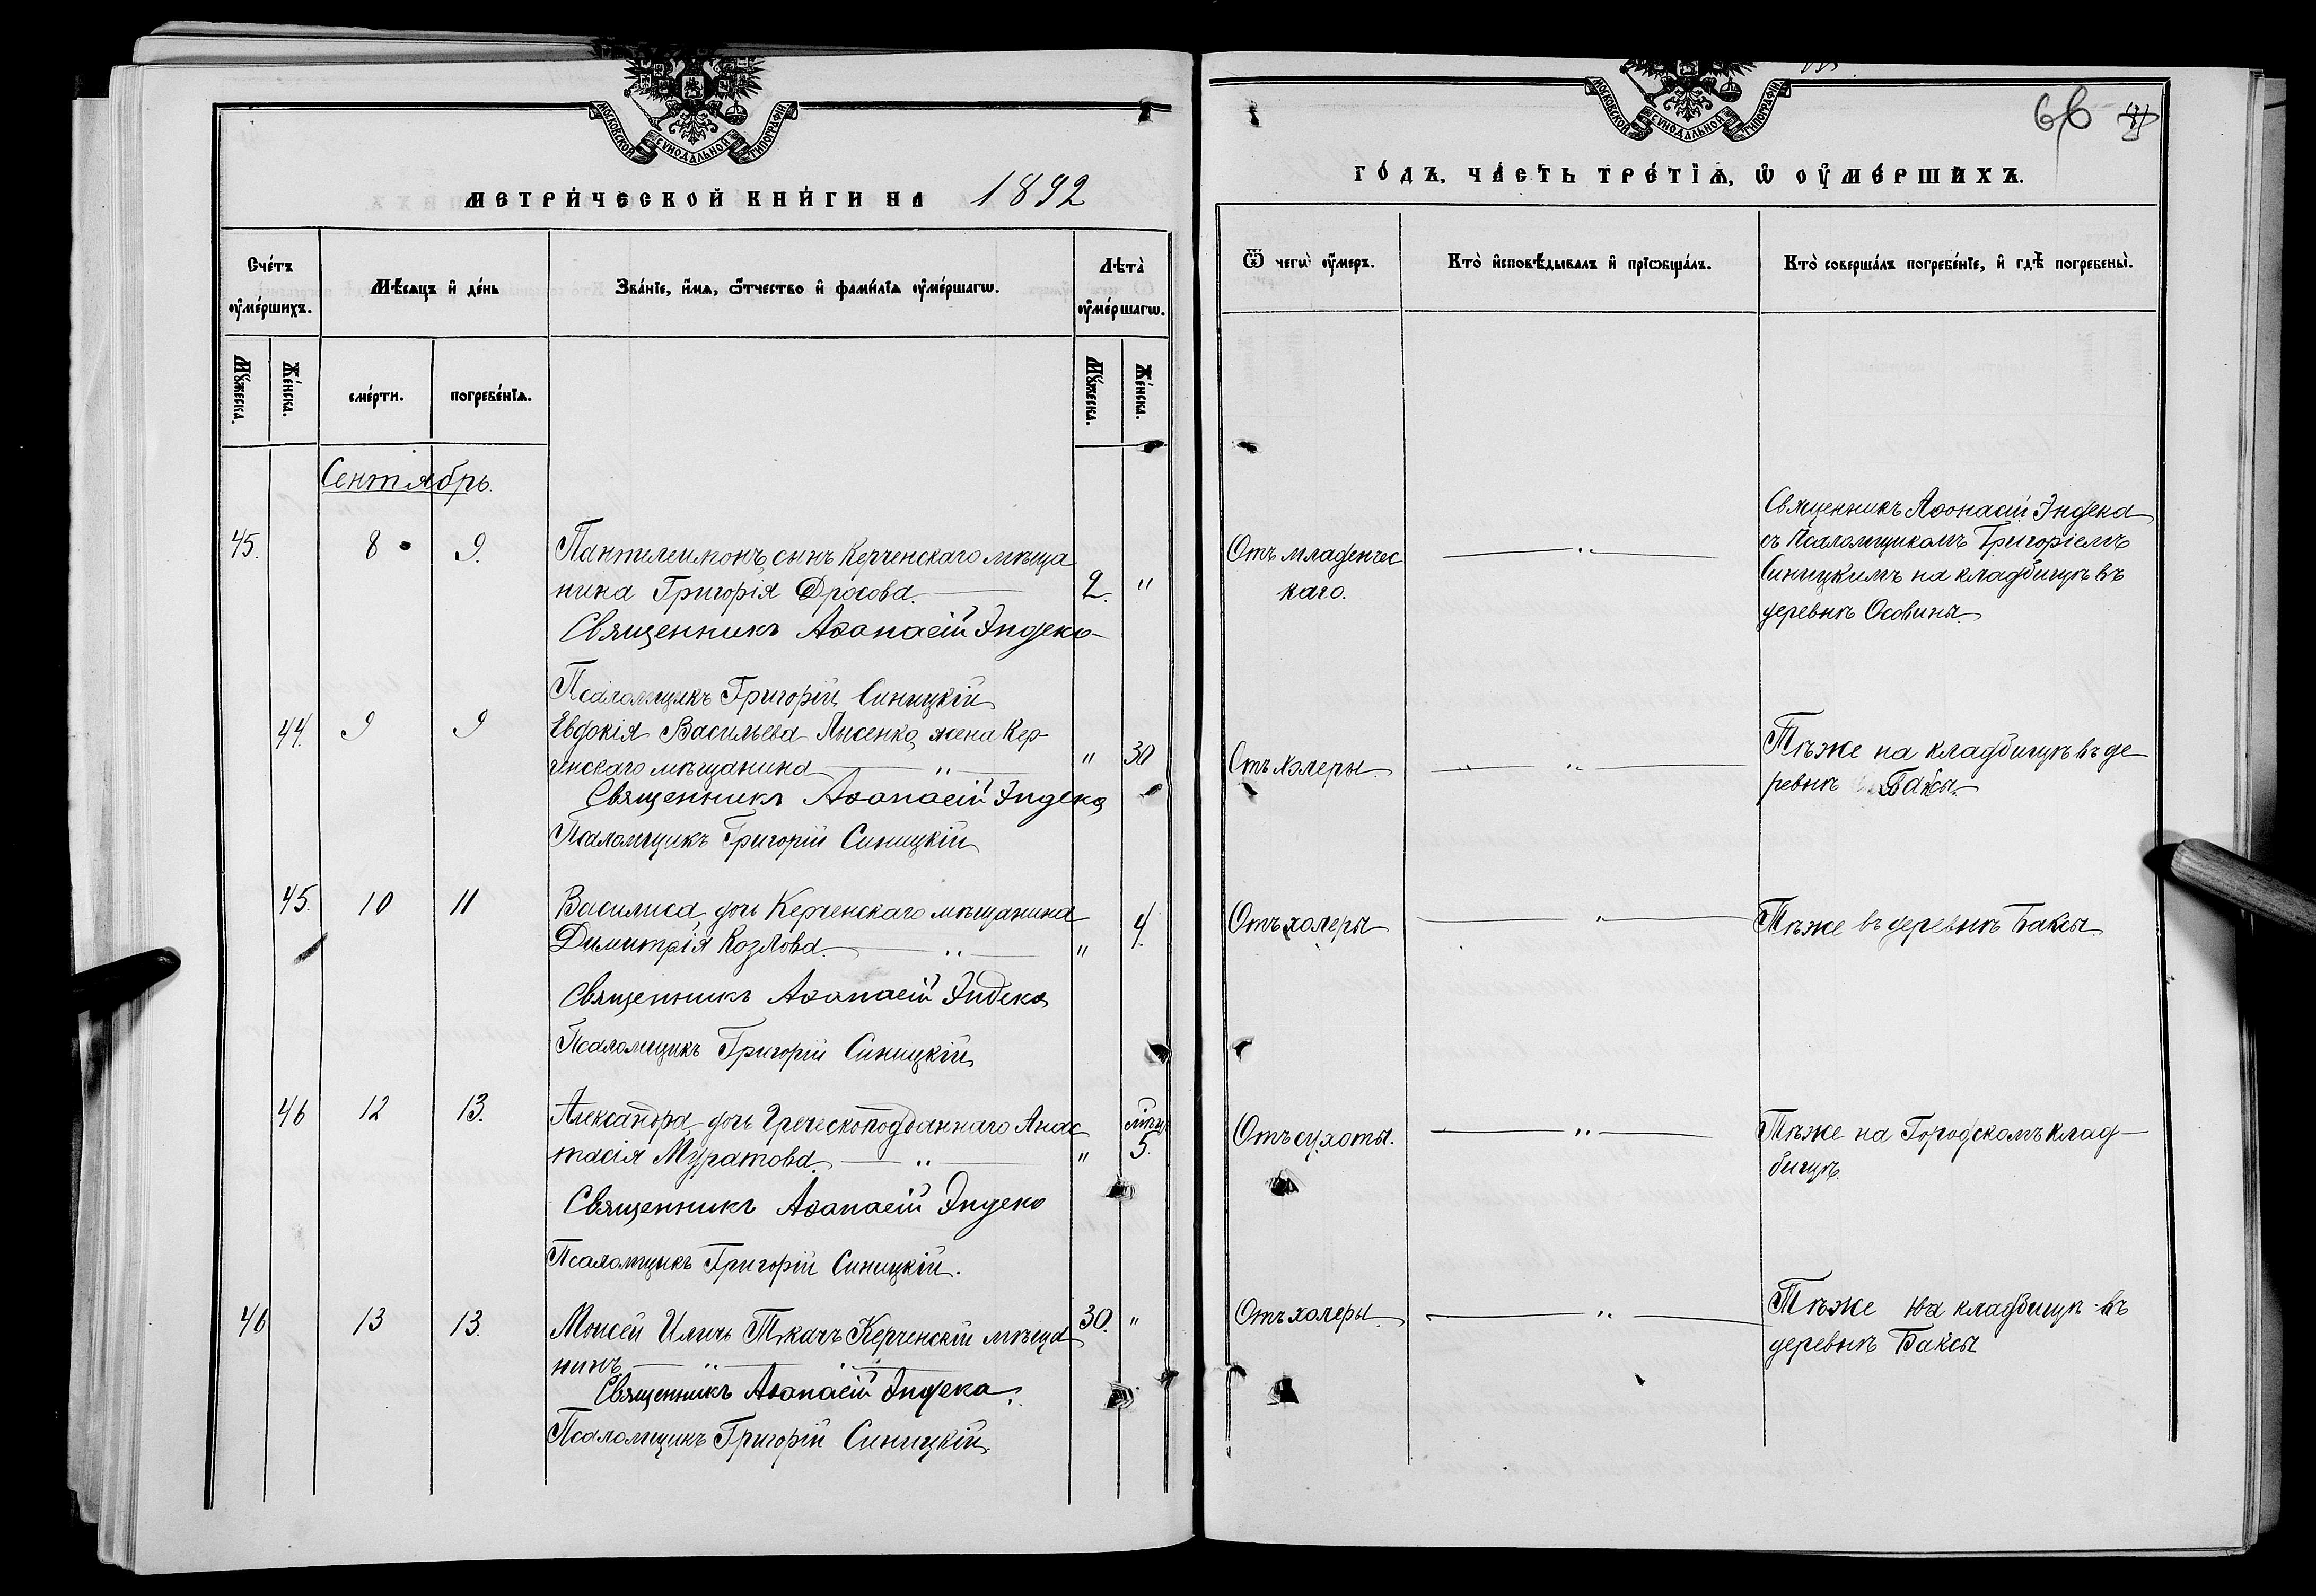 МОСКОВСКОЙ СѴНОДАЛЬНОЙ ТИПОГРАФІИ
МЕТРИ́ЧЕСКОЙ КНИ́ГИ НА 1892
Сче́тъ ᲂу҆ме́ршихъ.
Мѣ́сяцъ и҆ де́нь
Зва́нїе, и҆́мѧ, ѻ҆́тчество и҆ фами́лїѧ ᲂу҆ме́ршагѡ.
Лѣта̀ ᲂу҆ме́ршагѡ.
Мꙋ́жеска.
Же́нска.
сме́рти.
погребе́нїѧ.
Мꙋ́жеска.
Же́нска.
Сентябрь.
45. 8 9. Пантелеимонъ, сынъ Керченскаго мѣща
нина Григорія Дросова. 2. "
Священникъ Аѳанасій Индеко
Псаломщикъ Григорій Синицкій
44. 9 9 Евдокія Васильева Лысенко, жена Кер-
ченскаго мѣщанина " " 30
Священникъ Аѳанасій Индеко
Псаломщикъ Григорій Синицкій
45. 10 11 Василиса, дочь Керченскаго мѣщанина
Димитрія Козлова. " " 4.
Священникъ Аѳанасій Индеко
Псаломщикъ Григорій Синицкій
46 12 13. Александра, дочь Греческоподданнаго Анас
тасія Муратова. " " 5.
Священникъ Аѳанасій Индеко
Псаломщикъ Григорій Синицкій.
46 13 13. Моисей Иличъ Ткачъ Керченскій мѣща 30. "
нинъ "
Священникъ Аѳанасій Индеко.
Псаломщикъ Григорій Синицкій.
МОСКОВСКОЙ СѴНОДАЛЬНОЙ ТИПОГРАФІИ
ГО́ДЪ, ЧА́СТЬ ТРЕ́ТЇѦ, Ѡ҆ ОУ҆МЕ́РШИХЪ.
Ѿ чегѡ̀ ᲂу҆́меръ.
Кто̀ и҆сповѣ́дывалъ и҆ прїѡбща́лъ.
Кто̀ соверша́лъ погребе́нїе, и҆ гдѣ̀ погребены̀.
Отъ младенчес
каго.
"
Священникъ Аѳонасій Индека
съ Псаломщикомъ Григоріемъ
Синицкимъ на кладбищѣ въ
деревнѣ Осовины.
Отъ холеры. " "
Тѣже на кладбищѣ въ де
ревнѣ Баксы.
Отъ холеры "
Тѣже въ деревнѣ Баксы.
Отъ сухоты. "
Тѣже на Городскомъ клад-
бищѣ.
Отъ холеры. "
Тѣже на кладбищѣ въ
деревнѣ Баксы